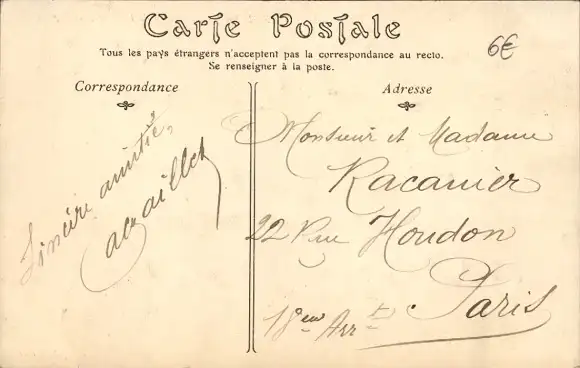 Carte Postale
Tous les pays étrangers n'acceptent pas la correspondance au recto.
Se renseigner à la poste.
6€
Correspondance
Sincère amitié,
Adresse
Monsieur et Madame
Racanier
22 Rue Houdon
Paris
18eme Arrt